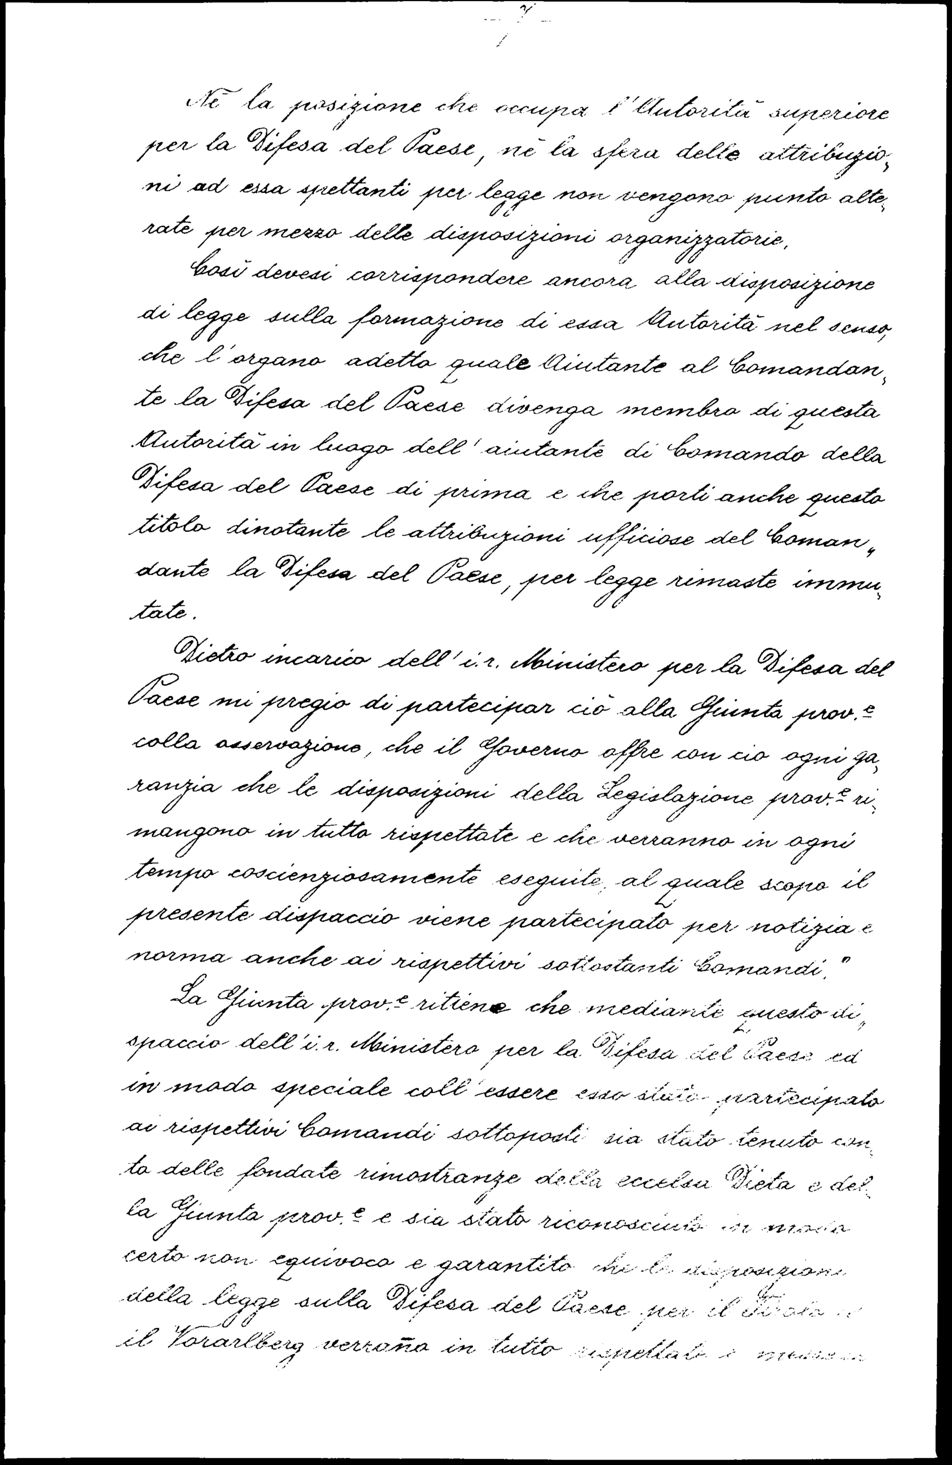 Nè la posizione che occupa l'Autorità superiore
per la Difesa del Paese, nè la sfera delle attribuzio„
ni ad essa spettanti per legge non vengono punto alte„
rate per mezzo delle disposizioni organizzatorie.
Così devesi corrispondere ancora alla disposizione
di legge sulla formazione di essa Autorità nel senso,
che l'organo adetto quale Aiutante al Comandan„
te la Difesa del Paese divenga membro di questa
Autorità in luogo dell'aiutante di Comando della
Difesa del Paese di prima e che porti anche questo
titolo dinotante le attribuzioni ufficiose del Coman„
dante la Difesa del Paese, per legge rimaste immu„
tate.
Dietro incarico dell'i.r. Ministero per la Difesa del
Paese mi pregio di partecipar ciò alla Giunta prov.e
colla osservazione, che il Governo offre con cio ogni ga„
ranzia che le disposizioni della Legislazione prov.e ri„
mangono in tutto rispettate e che verranno in ogni
tempo coscienziosamente eseguite, al quale scopo il
presente dispaccio viene partecipato per notizia e
norma anche ai rispettivi sottostanti Comandi."
La Giunta prov.e ritiene che mediante questo di„
spaccio dell'i.r. Ministero per la Difesa del Paese ed
in modo speciale coll'essere esso stato partecipato
ai rispettivi Comandi sottoposti sia stato tenuto con„
to delle fondate rimostranze della eccelsa Dieta e del„
la Giunta prov.e e sia stato riconosciuto in modo
certo non equivoco e garantito che le disposizioni
della legge sulla Difesa del Paese per il Tirolo e
il Vorarlberg verrano in tutto rispettate e